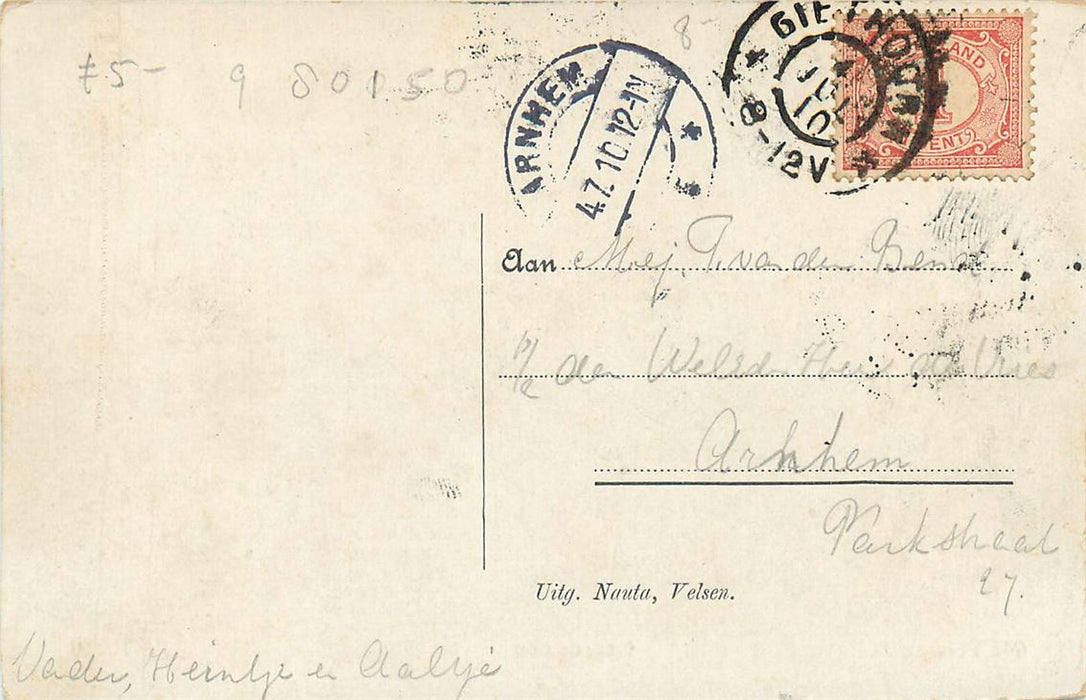 ±5- 9 80150
8-
ARNHEM
4.7.10.12-1N
GIETHOORN
4 JUL 10
8-12V
LAND
CENT
Aan Mej. T. van den Berg
p/a den WelEd. Heer de Vries
Arnhem
Parkstraat
27.
Uitg. Nauta, Velsen.
Vader, Heintje en Aaltje